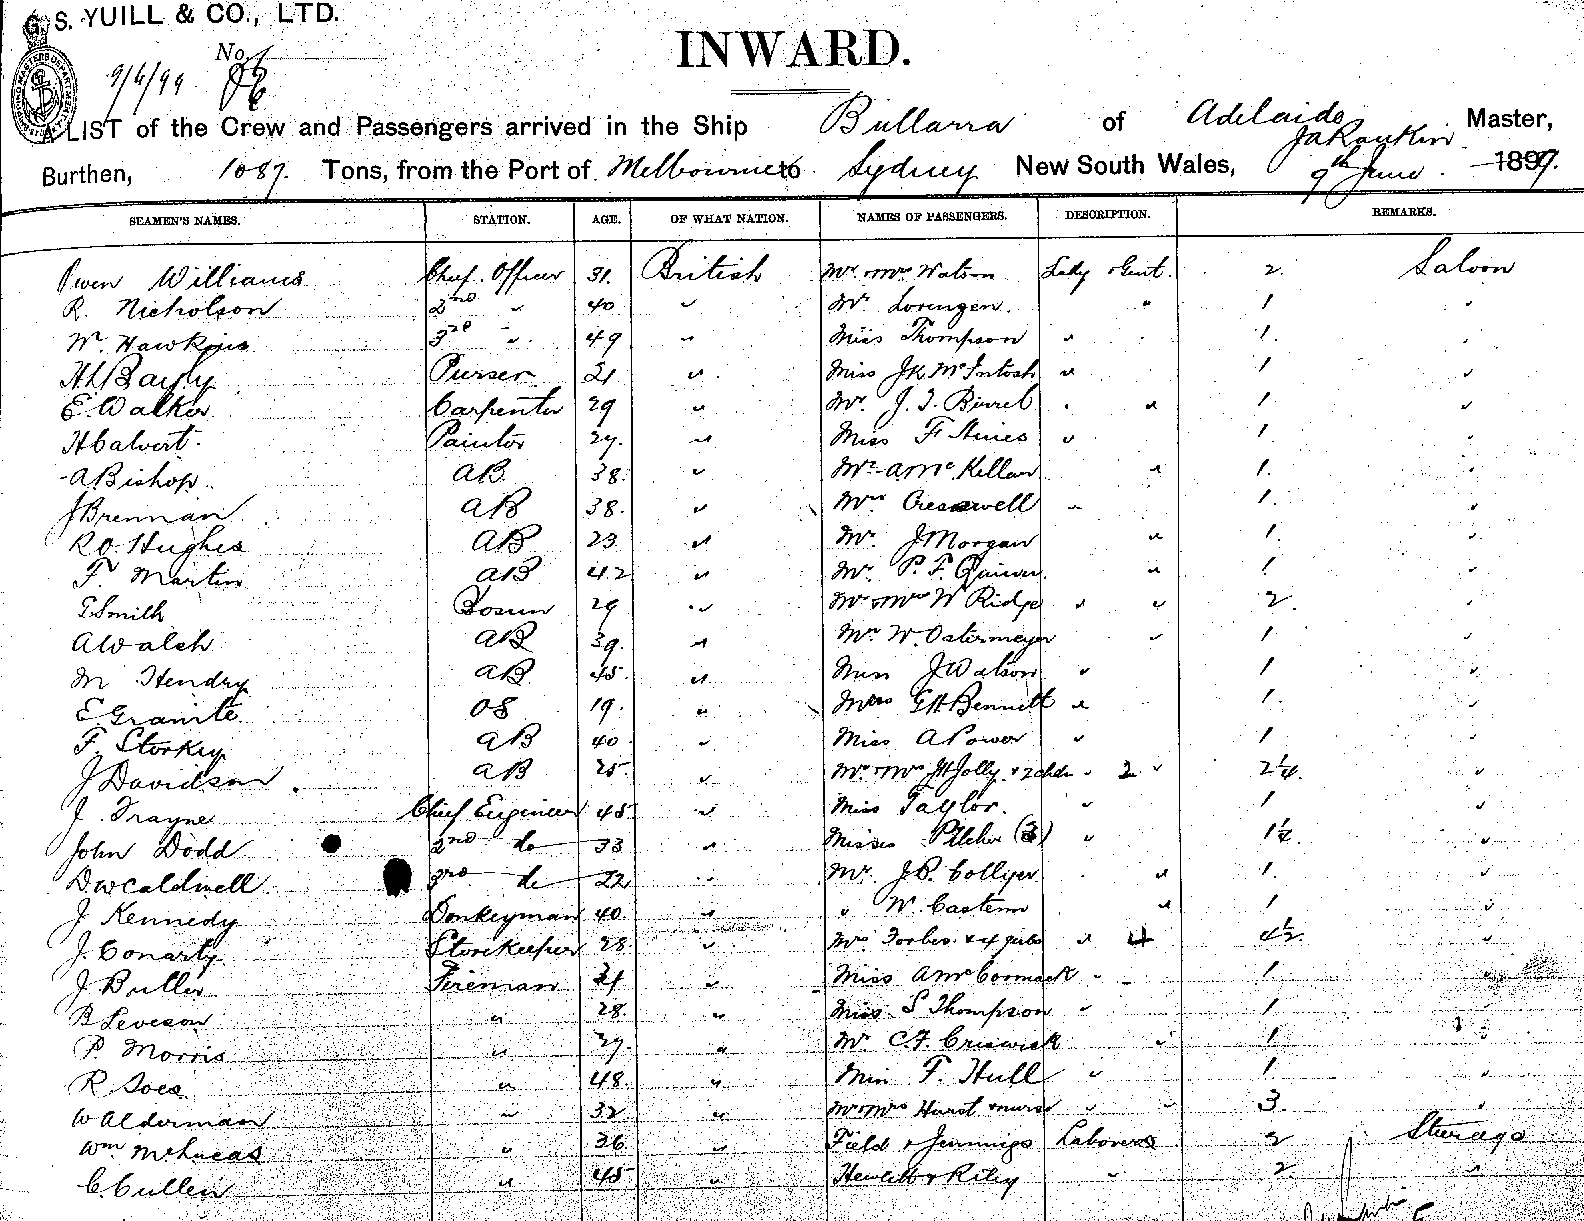 G. S. YUILL & CO., LTD.
INWARD.
No.
9/6/99
A LIST of the Crew and Passengers arrived in the Ship Bullarra of Adelaide JA Rankin Master,
Burthen, 1087. Tons, from the Port of Melbourne to Sydney New South Wales, 9th June. 1899.
SEAMEN'S NAMES. STATION. AGE. OF WHAT NATION. NAMES OF PASSENGERS. DESCRIPTION. REMARKS.
Owen Williams Chief Officer 31. British Mr. & Mrs Watson Lady & Gent. 2. Saloon
R. Nicholson 2nd " 40 " Mr. Lorengen. " 1 "
W. Hawkins 3rd " 49 " Miss Thompson " 1. "
HL Bayly Purser 21 " Miss JK McIntosh " 1 "
E. Walker Carpenter 29 " Mr. J. T. Birrel " 1 "
H Calvert. Painter 27. " Miss F Hines " 1. "
A Bishop AB 38. " Mr. A Mc Kellar " 1. "
J Brennan AB 38. " Mrs Cresswell " 1. "
R O. Hughes AB 23 " Mr. J Morgan " 1. "
F. Martin AB 42 " Mr. P. F. " 1 "
G Smith Bosun 29 " Mr & Mrs W Ridge " " 2. "
A Walsh AB 39. " Mr W. Ostermeyer " 1 "
M Hendry AB 45. " Miss J Watson " 1 "
E Granite OS 19. " GH Bennett " 1. "
F. Storkey AB 40 " Miss A Power " 1 "
J Davidson AB 25 " Mr & Mrs JH Jolly & 2 chdn " 2 " 2¼. "
J. Trayne Chief Engineer 45 " Miss Taylor. " 1 "
John Dodd 2nd do 33 " Misses Pilcher (3) " "
D. W Caldwell. 3rd do 22 " Mr. J. P. Collyer " 1. "
J Kennedy Donkeyman 40. " " W. " 1 "
J. Conarty Storekeeper 28. " Mrs Forbes & 4 " 4 4½. "
J Butler Fireman " Miss A McCormack " 1. "
B Leveson " 28. " Miss S Thompson " 1 "
P Morris " 29. " Mr C. F. Criswick " 1. "
R " 48. " Miss F. Hull " 1. "
W Alderman " 32 " Mr & Mrs Hurst & nurse " " 3. "
Wm McLucas " 36 " Field & Jennings Laborers 2 Steerage
C. Cullen " 45 " Hewlett & Riley " 2. "